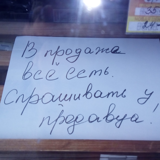 В продаже
всё есть.
Спрашивать у
продавца.